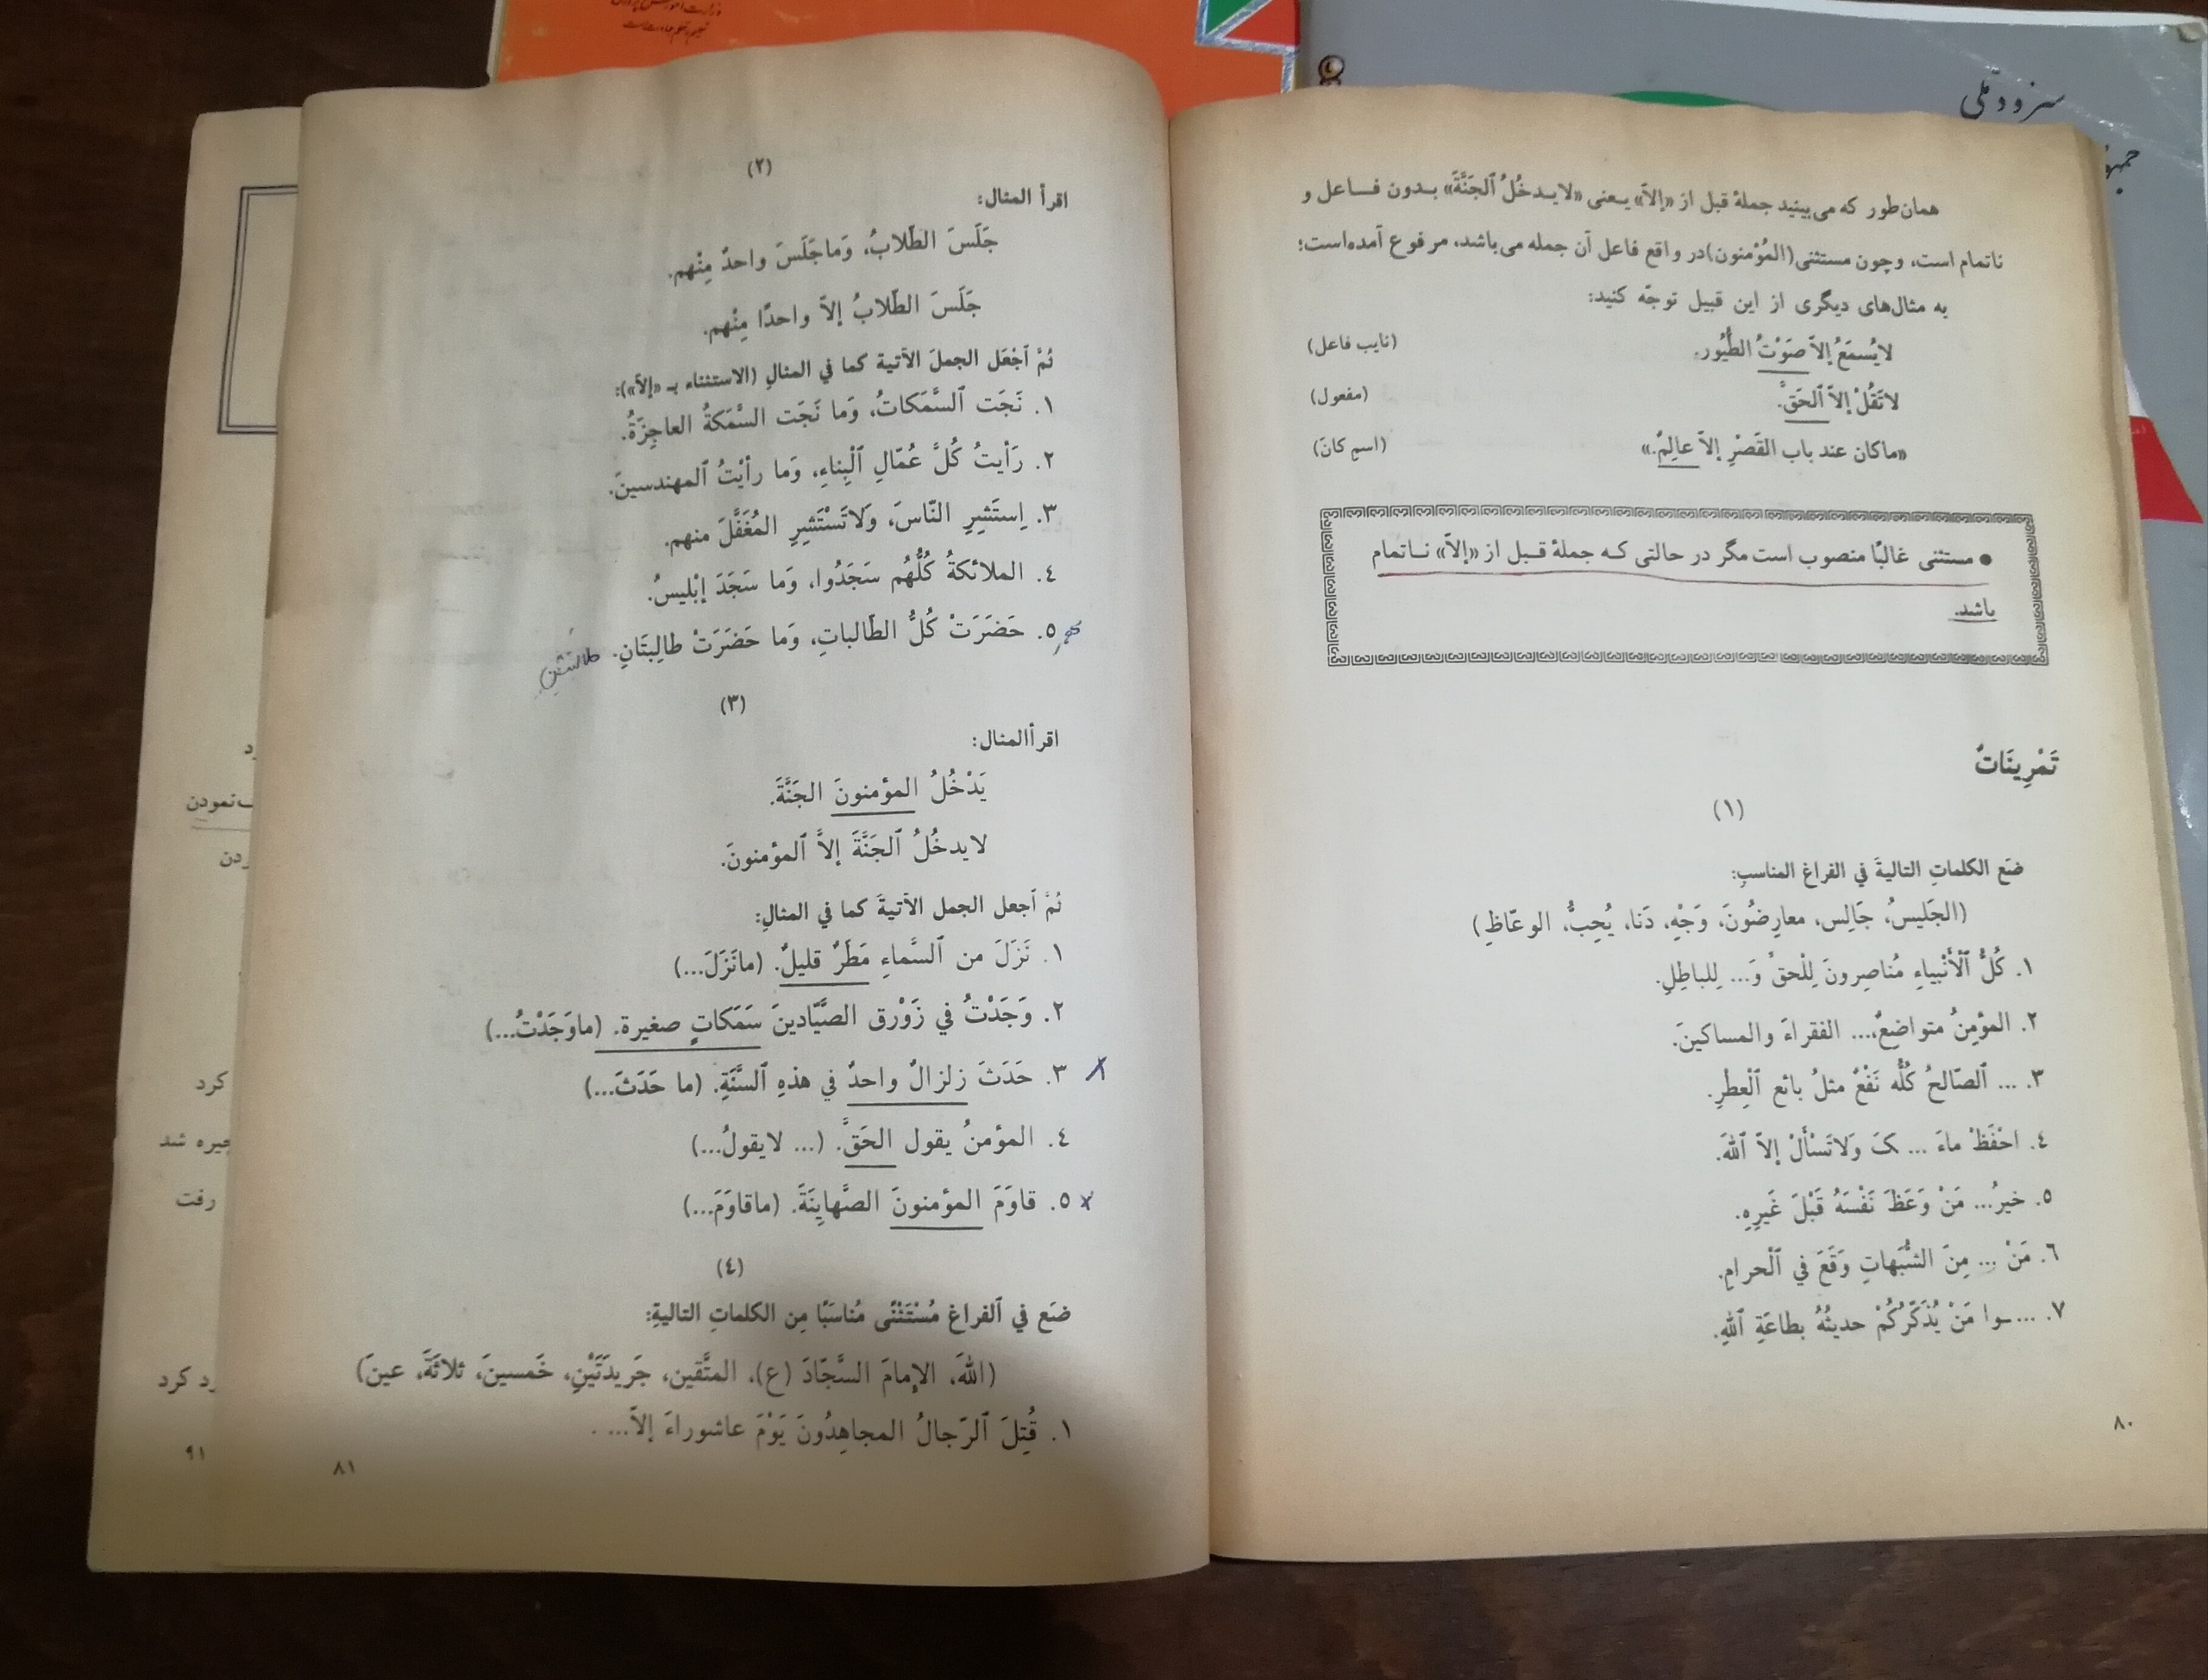 سرود ملّی
همان‌طور که می‌بینید جملهٔ قبل از «إلاّ» یـعنی «لایـدخُلُ ٱلجَنَّةَ» بـدون فـــاعل و
ناتمام است، وچون مستثنی(المُؤْمنون)در واقع فاعل آن جمله می‌باشد، مرفوع آمده‌است؛
به مثال‌های دیگری از این قبیل توجّه کنید:
لایُسمَعُ إلاّ صَوْتُ الطُّیُور. (نایب فاعل)
لاتَقُلْ إلاّ ٱلحَقَّ. (مفعول)
«ماکان عند باب القَصْرِ إلاّ عالِمٌ.» (اسمِ کانَ)
● مستثنی غالبًا منصوب است مگر در حالتی کـه جملهٔ قـبل از «إلاّ» نـاتمام
باشد.
تَمْرِينَاتٌ
(١)
ضَع الكلماتِ التاليةَ في الفراغِ المناسبِ:
(الجَليسُ، جَالِس، معارِضُونَ، وَجْهِ، دَنا، يُحِبُّ، الوعّاظِ)
١. كُلُّ ٱلْأَنْبياءِ مُناصِرونَ لِلْحقِّ وَ... لِلباطِلِ.
٢. المؤمِنُ متواضِعٌ،... الفقراءَ والمساكينَ.
٣. ... ٱلصّالحُ كُلُّه نَفْعٌ مثلُ بائع ٱلْعِطْرِ.
٤. احْفَظْ ماءَ ... كَ وَلاتَسْأَلْ إلاّ ٱللّٰهَ.
٥. خيرُ... مَنْ وَعَظَ نَفْسَهُ قَبْلَ غَيرِهِ.
٦. مَنْ ... مِنَ الشُّبَهاتِ وَقَعَ في ٱلْحرامِ.
٧. ...ـوا مَنْ يُذَكِّرُكُمْ حديثُهُ بطاعَةِ ٱللّٰهِ.
٨٠
(٢)
اقرأ المثال:
جَلَسَ الطّلابُ، وَماجَلَسَ واحدٌ مِنْهم.
جَلَسَ الطّلابُ إلاّ واحدًا مِنْهم.
ثُمَّ ٱجْعَل الجملَ الآتية كما في المثالِ (الاستثناء بـ «إلاّ»):
١. نَجَت ٱلسَّمَكاتُ، وَما نَجَت السَّمَكةُ العاجِزَةُ.
٢. رَأيتُ كُلَّ عُمّالِ ٱلْبِناءِ، وَما رأيْتُ ٱلمهندسينَ.
٣. اِستَشِيرِ النّاسَ، وَلاتَسْتَشِيرِ المُغَفَّلَ منهم.
٤. الملائكةُ كُلُّهُم سَجَدُوا، وَما سَجَدَ إبْليسُ.
٥. حَضَرَتْ كُلُّ الطّالباتِ، وَما حَضَرَتْ طالِبتَانِ. طالبتَیْنِ
(٣)
اقرأالمثال:
يَدْخُلُ المؤمنونَ الجَنَّةَ.
لايدخُلُ ٱلجَنَّةَ إلاَّ ٱلمؤمنونَ.
ثُمَّ ٱجعل الجمل الآتيةَ كما في المثالِ:
١. نَزَلَ من ٱلسَّماءِ مَطَرٌ قليلٌ. (مانَزَلَ...)
٢. وَجَدْتُ في زَوْرق الصَّيّادينَ سَمَكاتٍ صغيرة. (ماوَجَدْتُ...)
٣. حَدَثَ زلزالٌ واحدٌ في هذهِ ٱلسَّنَةِ. (ما حَدَثَ...)
٤. المؤمنُ يقول الحَقَّ. (... لايقولُ...)
٥. قاوَمَ المؤمنونَ الصَّهاينَةَ. (ماقاوَمَ...)
(٤)
ضَع في ٱلفراغِ مُسْتَثْنًى مُناسَبًا مِن الكلماتِ التاليةِ:
(اللّٰهَ، الإمامَ السَّجّادَ (ع)، المتَّقين، جَريدَتَيْنِ، خَمسينَ، ثلاثَةً، عينَ)
١. قُتِلَ ٱلرّجالُ المجاهِدُونَ يَوْمَ عاشوراءَ إلاّ... .
٨١
نمودن
کرد
رفت
کرد
٩١